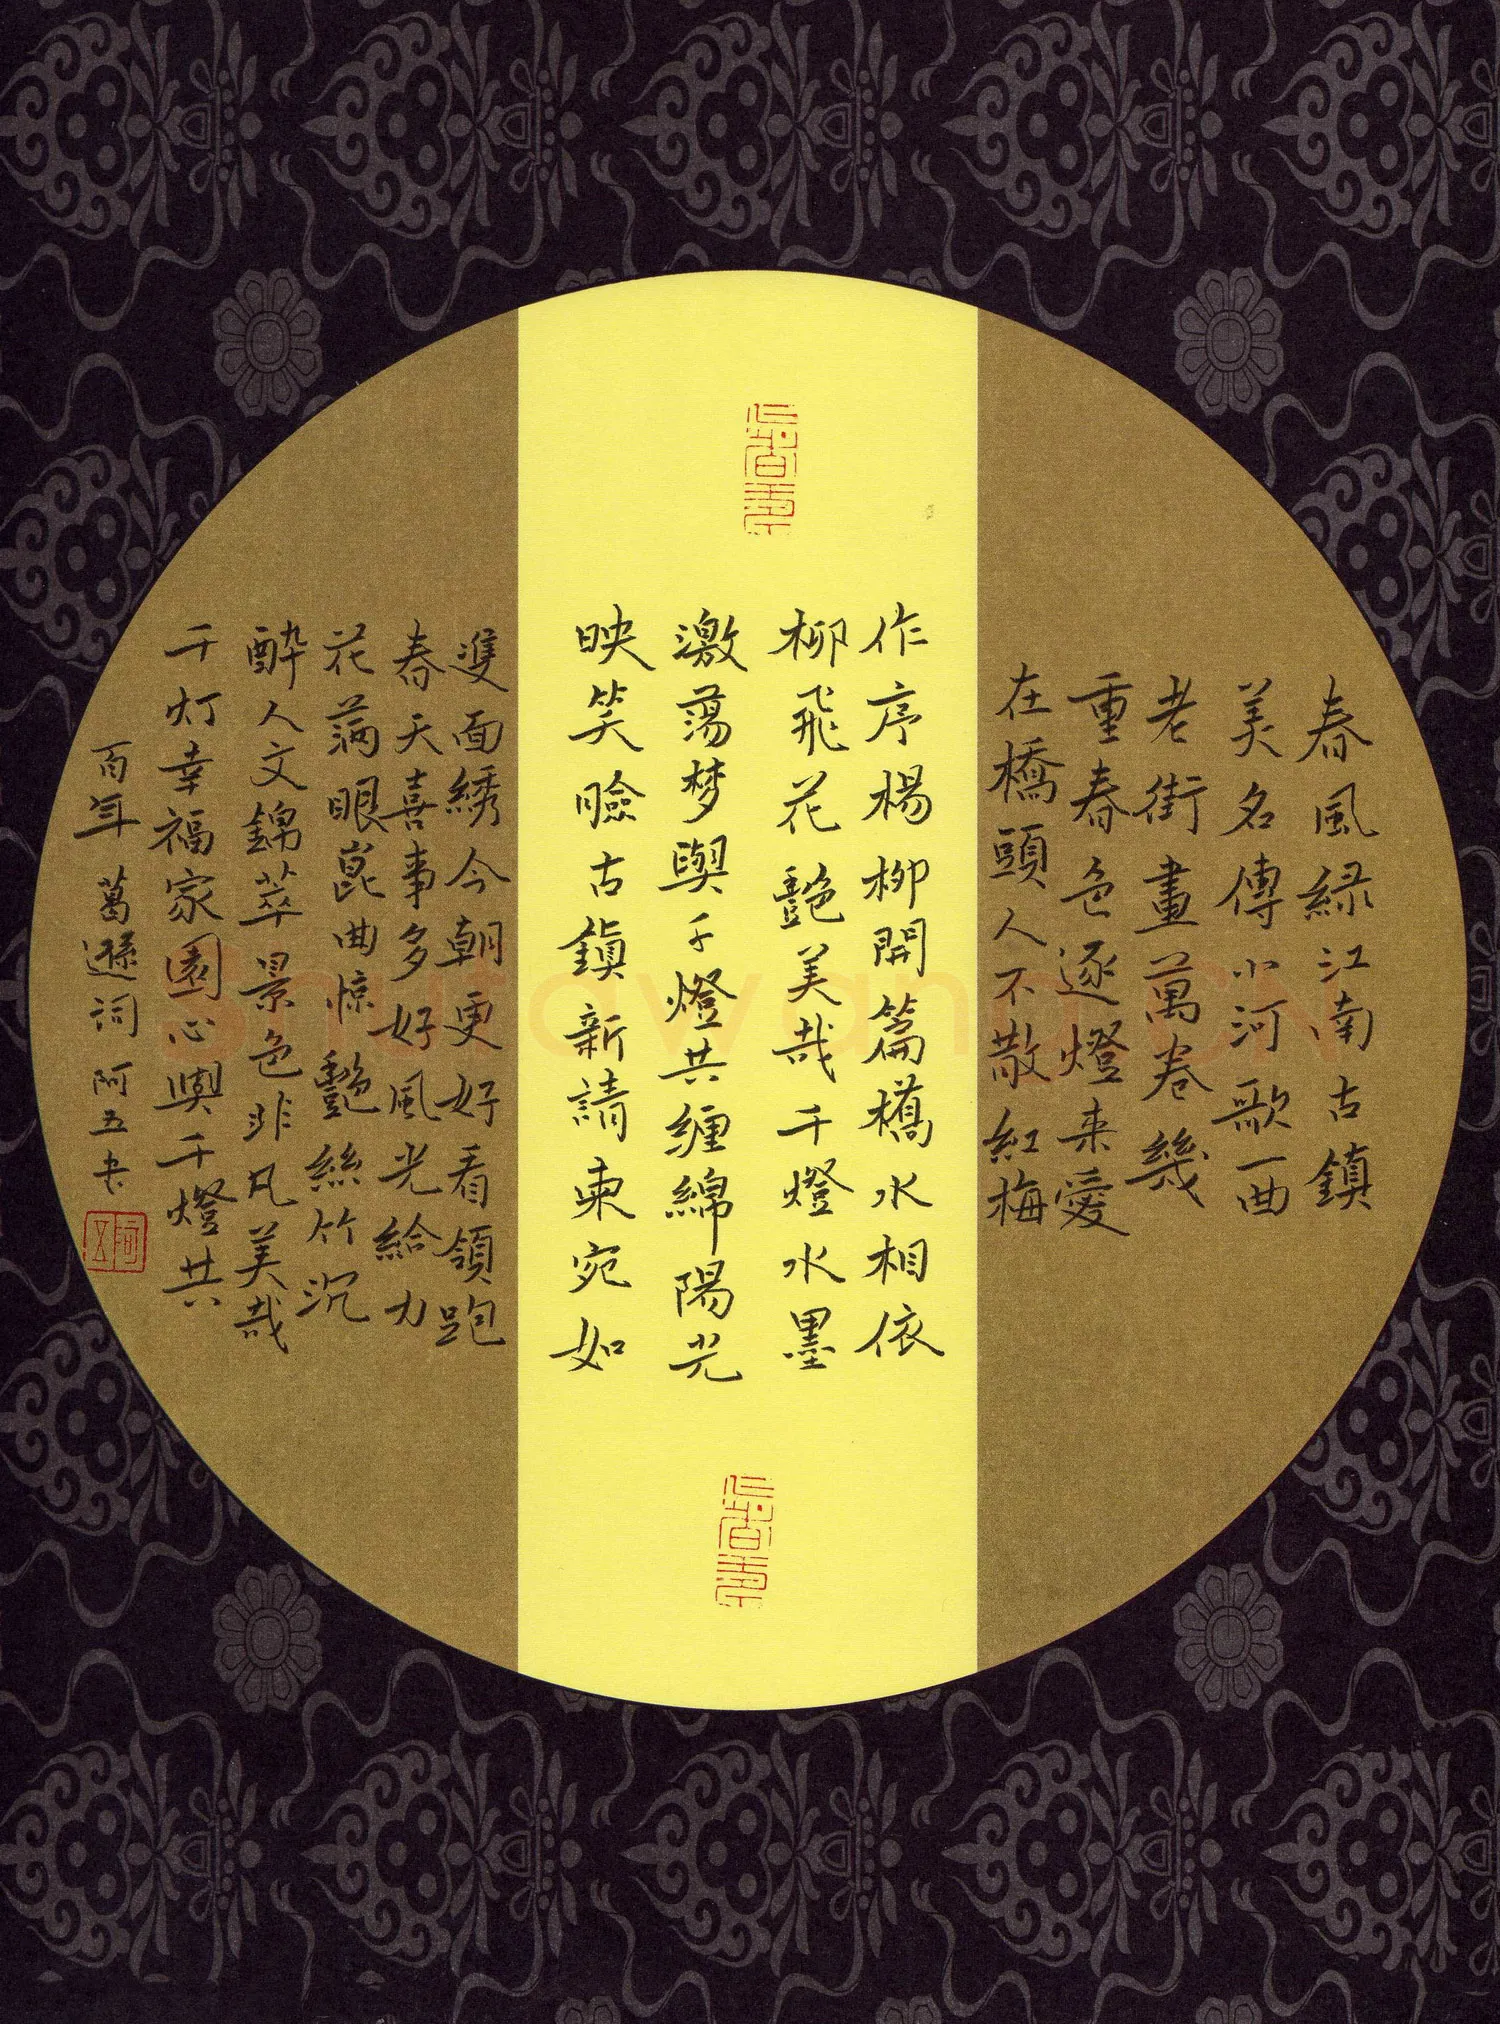 春風緑江南古鎮
美名傳小河歌一曲
老街畫萬卷幾
重春色逐燈来愛
在橋頭人不散紅梅
作序楊柳開篇橋水相依
柳飛花艷美哉千燈水墨
激蕩梦與千燈共缠綿陽光
映笑臉古鎮新請柬宛如
雙面綉今朝更好看領跑
春天喜事多好風光給力
花满眼崑曲惊艷絲竹沉
醉人文錦萃景色非凡美哉
千灯幸福家園心與千燈共
百年 葛遜词 阿五书
阿五